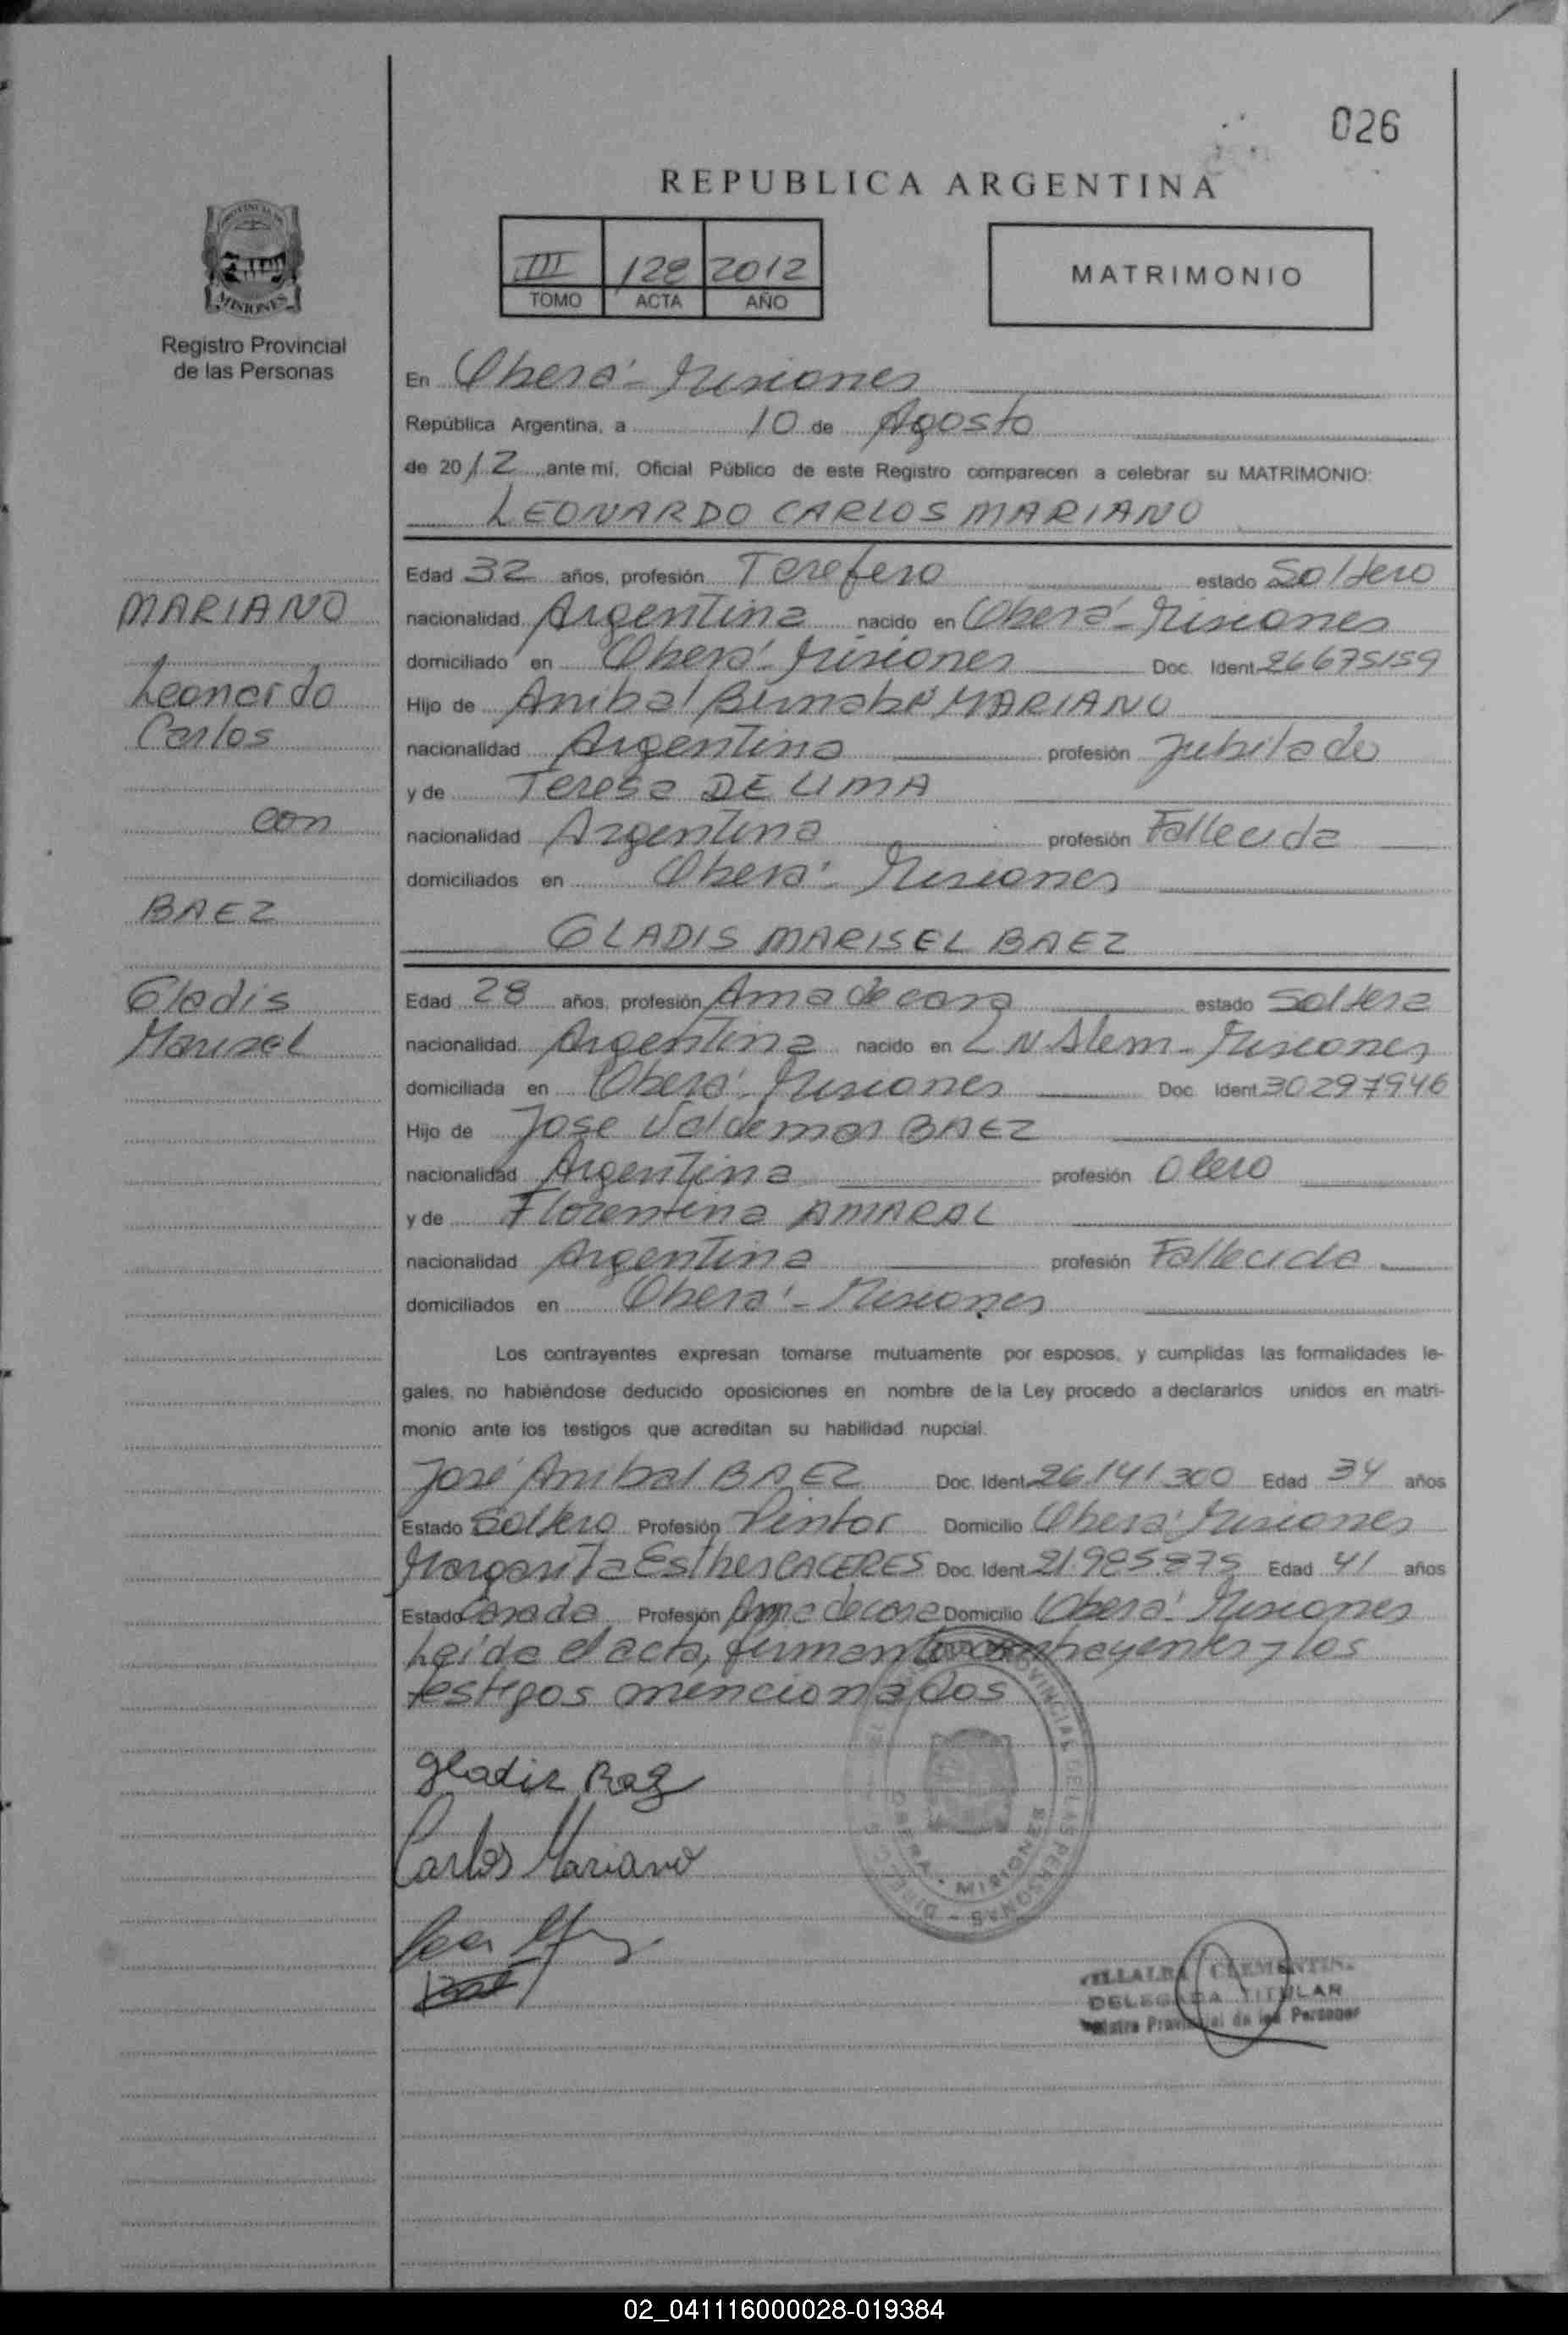 026
REPUBLICA ARGENTINA
PROVINCIA DE
MISIONES
Registro Provincial
de las Personas
III 128 2012
TOMO ACTA AÑO
MATRIMONIO
En Oberá - Misiones
República Argentina, a 10 de Agosto
de 2012 ante mí, Oficial Público de este Registro comparecen a celebrar su MATRIMONIO:
LEONARDO CARLOS MARIANO
Edad 32 años, profesión Tarefero estado Soltero
nacionalidad Argentina nacido en Oberá - Misiones
domiciliado en Oberá - Misiones Doc. Ident. 26675159
Hijo de Anibal Bernabé MARIANO
nacionalidad Argentina profesión Jubilado
y de Teresa DE LIMA
nacionalidad Argentina profesión Fallecida
domiciliados en Oberá - Misiones
GLADIS MARISEL BAEZ
Edad 28 años, profesión Ama de casa estado Soltera
nacionalidad Argentina nacido en L N Alem - Misiones
domiciliada en Oberá - Misiones Doc. Ident. 30297946
Hijo de Jose Valdemar BAEZ
nacionalidad Argentina profesión Olero
y de Florentina AMARAL
nacionalidad Argentina profesión Fallecida
domiciliados en Oberá - Misiones
MARIANO
Leonardo
Carlos
con
BAEZ
Gladis
Marisel
Los contrayentes expresan tomarse mutuamente por esposos, y cumplidas las formalidades le-
gales, no habiéndose deducido oposiciones en nombre de la Ley procedo a declararlos unidos en matri-
monio ante los testigos que acreditan su habilidad nupcial.
José Anibal BAEZ Doc. Ident. 26.141.300 Edad 34 años
Estado Soltero Profesión Pintor Domicilio Oberá Misiones
Margarita Esther CACERES Doc. Ident. 21.985.875 Edad 41 años
Estado Casada Profesión Ama de casa Domicilio Oberá - Misiones
Leída el acta, firman los contrayentes y los
testigos mencionados
Gladis Baez
Carlos Mariano
PROVINCIAL DE LAS PERSONAS
OBERA - MISIONES
VILLALBA CLEMENTIN.
DELEGADA TITULAR
Registro Provincial de las Personas
02_041116000028-019384